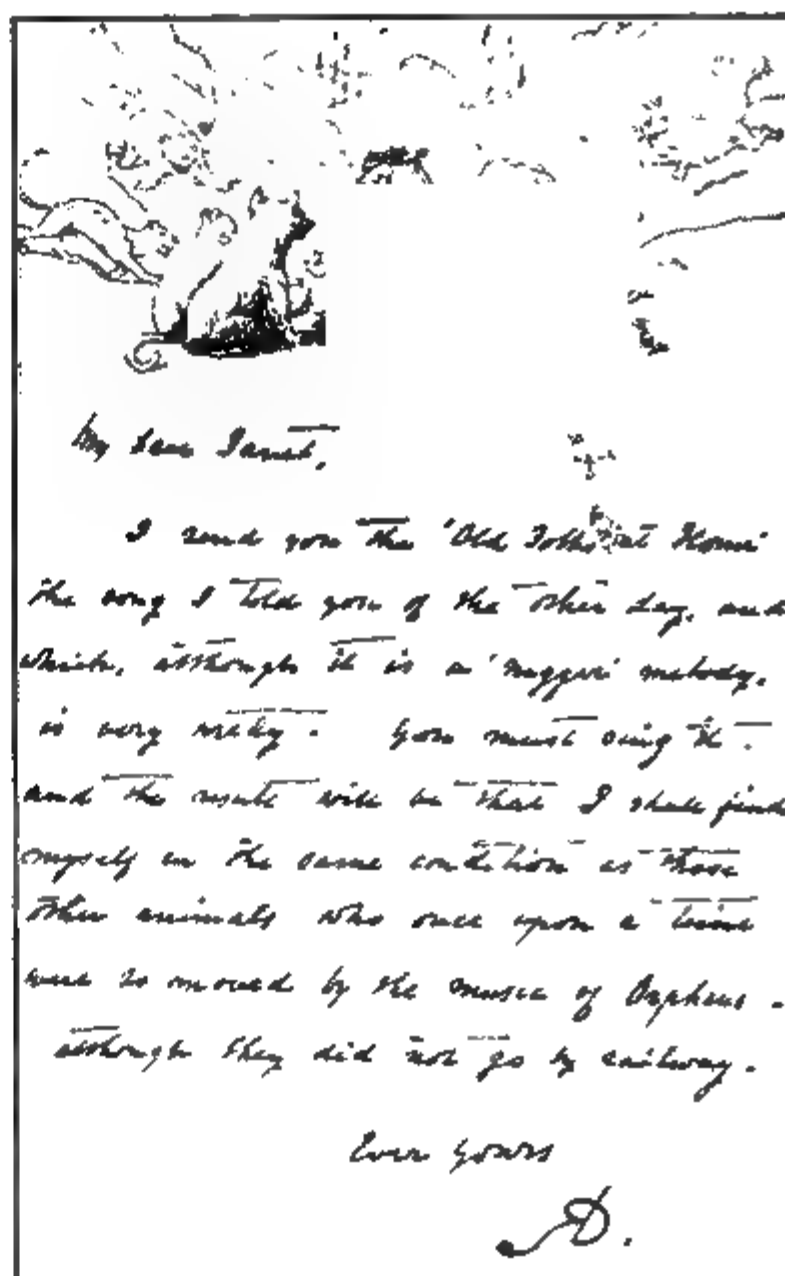 My dear Janet,
I send you the 'Old Folks at Home'
the song I told you of the other day, and
which, although it is a 'nigger' melody,
is very pretty. You must sing it.
and the result will be that I shall find
myself in the same condition as those
other animals who once upon a time
were so moved by the music of Orpheus.
although they did not go by railway.
Ever yours
RD.